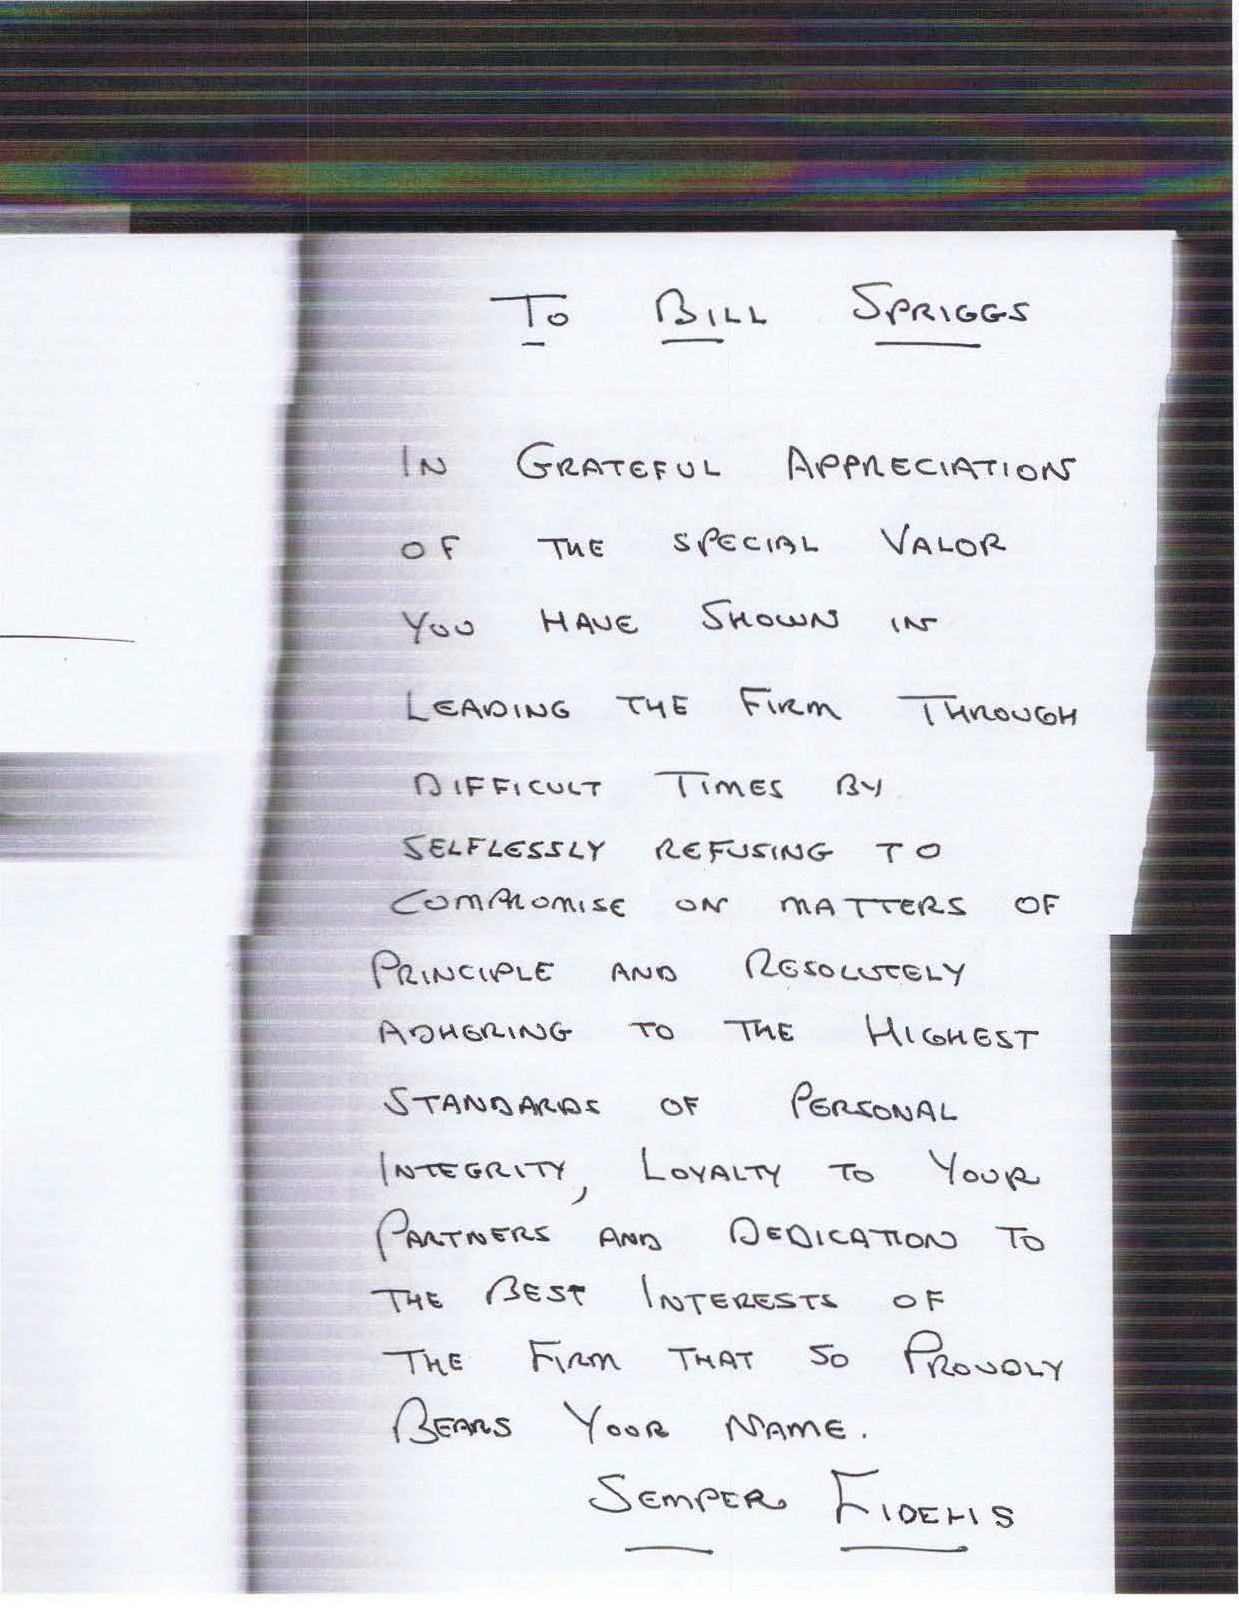 To BILL SPRIGGS
IN GRATEFUL APPRECIATION
OF THE SPECIAL VALOR
YOU HAVE SHOWN IN
LEADING THE FIRM THROUGH
DIFFICULT TIMES BY
SELFLESSLY REFUSING TO
COMPROMISE ON MATTERS OF
PRINCIPLE AND RESOLUTELY
ADHERING TO THE HIGHEST
STANDARDS OF PERSONAL
INTEGRITY, LOYALTY TO YOUR
PARTNERS AND DEDICATION TO
THE BEST INTERESTS OF
THE FIRM THAT SO PROUDLY
BEARS YOUR NAME.
SEMPER FIDELIS